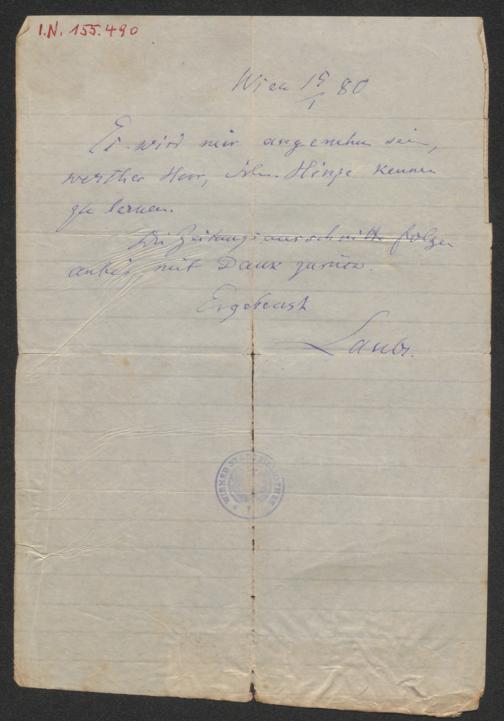 I.N. 155.490
Wien 19/1 80
Es wird mir angenehm sein,
werther Herr, Hinze kennen
zu lernen.
Die Zeitungsausschnitte folgen
anbei mit Dank zurück.
Ergebenst
Laube.
WIENER STADTBIBLIOTHEK